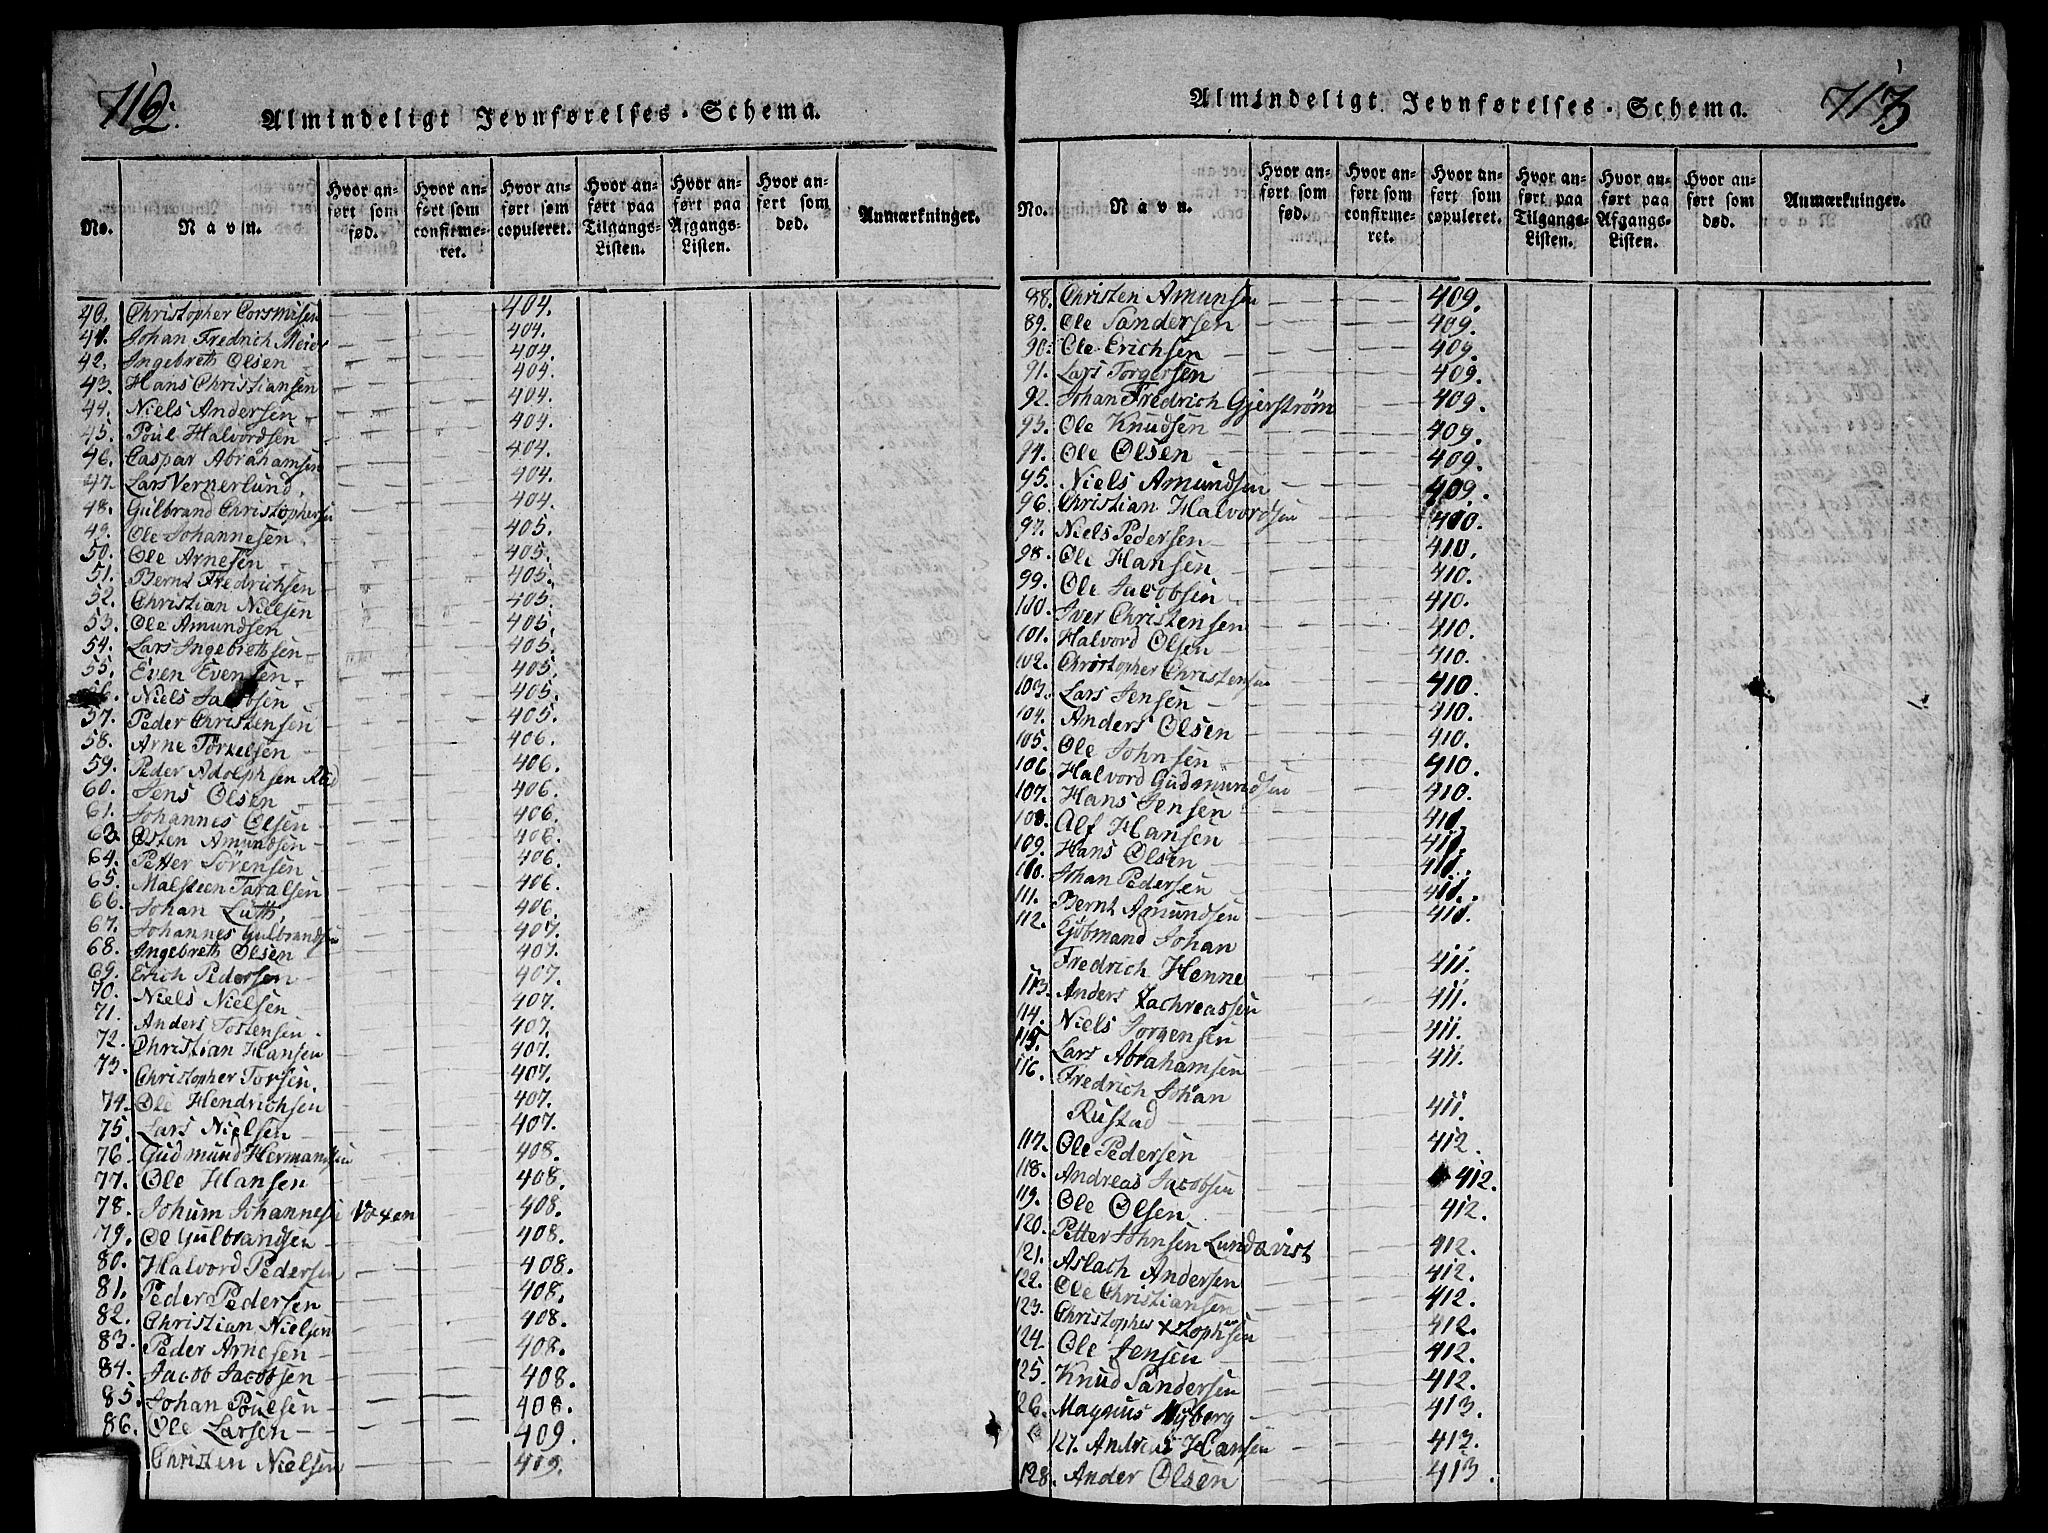 712.
Almindeligt Jevnførelses-Schema.
No.
Navn.
Hvor anført som fød.
Hvor anført som confirmeret.
Hvor anført som copuleret.
Hvor anført paa Tilgangs-Listen.
Hvor anført paa Afgangs-Listen.
Hvor anført som død.
Anmærkninger.
40. Christopher 404.
41. Johan Fredrich Meier 404.
42. Ingebreth Olsen 404.
43. Hans Christiansen 404.
44. Niels Andersen 404.
45. Poul Halvordsen 404.
46. Caspar Abrahamsen 404.
47. Lars Vernerlund. 404.
48. Gulbrand Christophersen 404.
49. Ole Johannesen 405.
50. Ole Arnesen 405.
51. Bernt Fredrichsen 405.
52. Christian Nielsen 405.
53. Ole Amundsen 405.
54. Lars Ingebretsen 405.
55. Even Evensen 405.
56. Niels Jacobsen 405.
57. Peder Christensen 405.
58. Arne Torkelsen 406.
59. Peder Adolphsen 406.
60. Jens Olsen 406.
61. Johannes Olsen 406.
63. Østen Amundsen 406.
64. Petter Sørensen 406.
65. Malsteen Taralsen 406.
66. Johan Luth 406.
67. Johannes Gulbrandsen 407.
68. Ingebreth Olsen 407.
69. Erich Pedersen 407.
70. Niels Nielsen 407.
71. Anders Tostensen 407.
72. Christian Hansen 407.
73. Christopher Torsen. 407.
74. Ole Hendrichsen 407.
75. Lars Nielsen 407.
76. Gudmund Hermandsen 408.
77. Ole Hansen 408.
78. Johum Johannesen Voxen 408.
79. Ol Gulbrandsen 408.
80. Halvord Pedersen 408.
81. Peder Pedersen 408.
82. Christian Nielsen 408.
83. Peder Arnesen 408.
84. Jacob Jacobsen 408.
85. Johan Poulsen 408.
86. Ole Larsen 409.
Christen Nielsen 409.
Almindeligt Jevnførelses-Schema.
713
No.
Navn.
Hvor anført som fød.
Hvor anført som confirmeret.
Hvor anført som copuleret.
Hvor anført paa Tilgangs-Listen.
Hvor anført paa Afgangs-Listen.
Hvor anført som død.
Anmærkninger.
88. Christen Amunsen 409.
89. Ole Sandersen 409.
90. Ole Erichsen 409.
91. Lars Torgersen 409.
92. Johan Fredrich Gjerström 409.
93. Ole Knudsen 409.
94. Ole Olsen 409.
95. Niels Amundsen 409.
96. Christian Halvordsen 410.
97. Niels Pedersen 410.
98. Ole Hansen 410.
99. Ole Jacobsen 410.
100. Iver Christensen 410.
101. Halvord Olsen 410.
102. Christopher Christensen 410.
103. Lars Jensen 410.
104. Anders Olsen 410.
105. Ole Johnsen 410.
106. Halvord Gudmundsen 410.
107. Hans Jensen 411.
108. Alf Hansen 411.
109. Hans Olsen 411.
110. Johan Pedersen 411.
111. Bernt Amundsen 411.
112. Kjøbmand Johan
Fredrich Henne 411.
113. Anders Zachreassen 411.
114. Niels Jørgensen 411.
115. Lars Abrahamsen 411.
116. Fredrich Johan
Rustad 411.
117. Ole Pedersen 412.
118. Andreas Jacobsen 412.
119. Ole Olsen 412.
120. Petter Johnsen Lundqvist 412.
121. Aslach Andersen 412.
122. Ole Christiansen 412.
123. Christopher 412.
124. Ole Jensen 412.
125. Knud Sandersen 412.
126. Magnus Nyberg 413.
127. Andreas Hansen 413.
128. Ander Olsen 413.